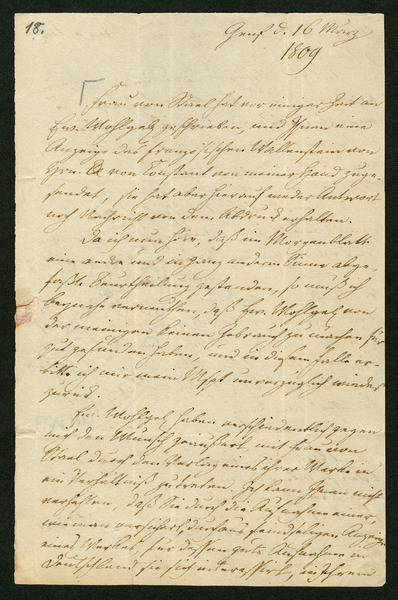 18.
Genf d. 16 März
1809
Frau von Stael hat vor einiger Zeit an
Ew. Wohlgeb. geschrieben, und Ihnen eine
Anzeige des französischen Wallenstein von
Hrn. B. von Constant von meiner Hand zuge-
sendet, sie hat aber hierauf weder Antwort
noch Nachricht von dem Abdruck erhalten.
Da ich nun höre, daß im Morgenblatt
eine andre und in ganz anderm Sinne abge-
faßte Beurtheilung gestanden, so muß ich
beynahe vermuthen, daß Ew. Wohlgeb. von
der meinigen keinen Gebrauch zu machen für
gut gefunden haben, und in diesem Falle er-
bitte ich mir mein Mspt unverzüglich wieder
zurück.
Ew. Wohlgeb. haben verschiedentlich gegen
mich den Wunsch geäußert, mit Frau von
Stael durch den Verlag eines ihrer Werke in
ein Verhältniß zu treten. Ich kann Ihnen nicht
verhehlen, daß Sie durch die Aufnahme einer,
wie man versichert, durchaus feindseligen Anzeige
eines Werkes, für dessen gute Aufnahme in
Deutschland sie sich interessirt, in ihrem